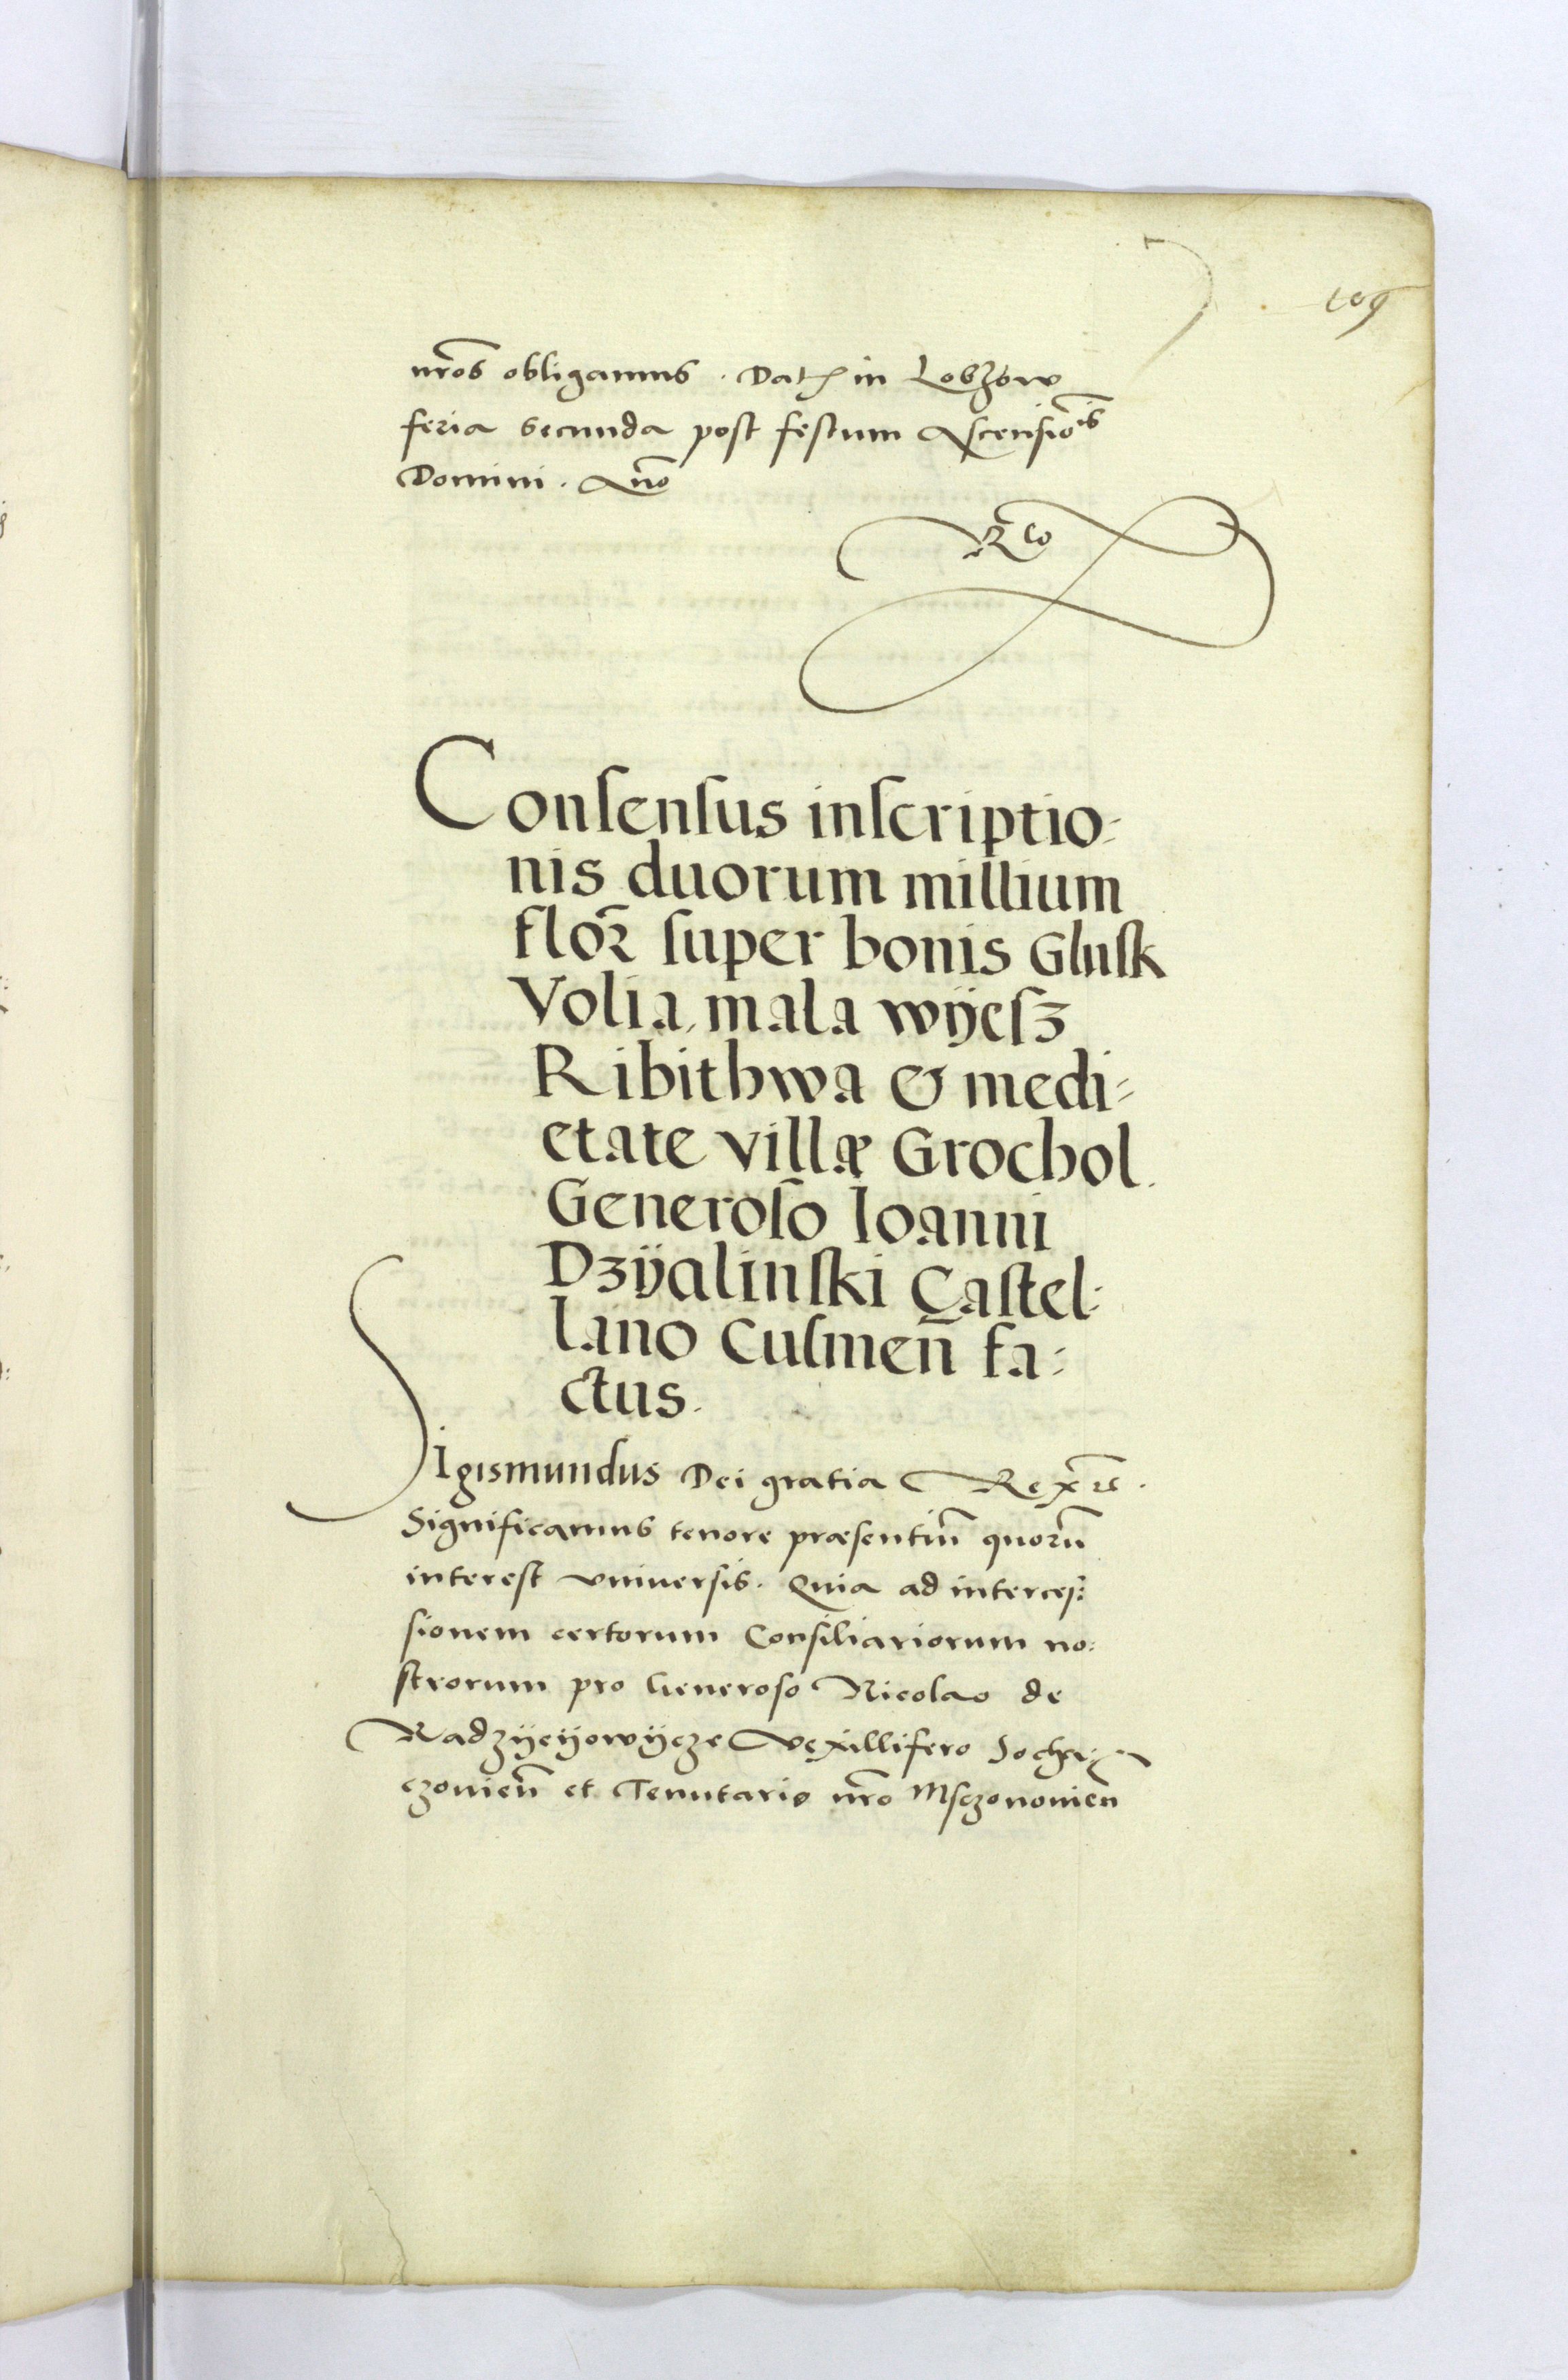 109
nr̃os obligamus. Dat̃ in Lobzow
feria secunda post festum Ascensiōis
Domini. Año
Rto
Conſenſus inſcriptio:
nis duorum millium
flor̃ ſuper bonis Gluſk
Volia, mala wÿeſz
Ribithwa & medi:
etate villæ Grochol.
Generoſo Ioanni
Dzÿalinſki Caſtel:
lano Culmeñ fa:
ctus.
Sigismundus Dei gratia Rex rc̃.
Significamus tenore præsentiū quorū
interest vniuersis. Quia ad interces:
sionem certorum Consiliariorum no:
strorum pro Generoso Nicolao de
Radzÿeÿowÿcze Vexillifero Socha:
czouieñ et Tenutario nr̃o Msczonouieñ